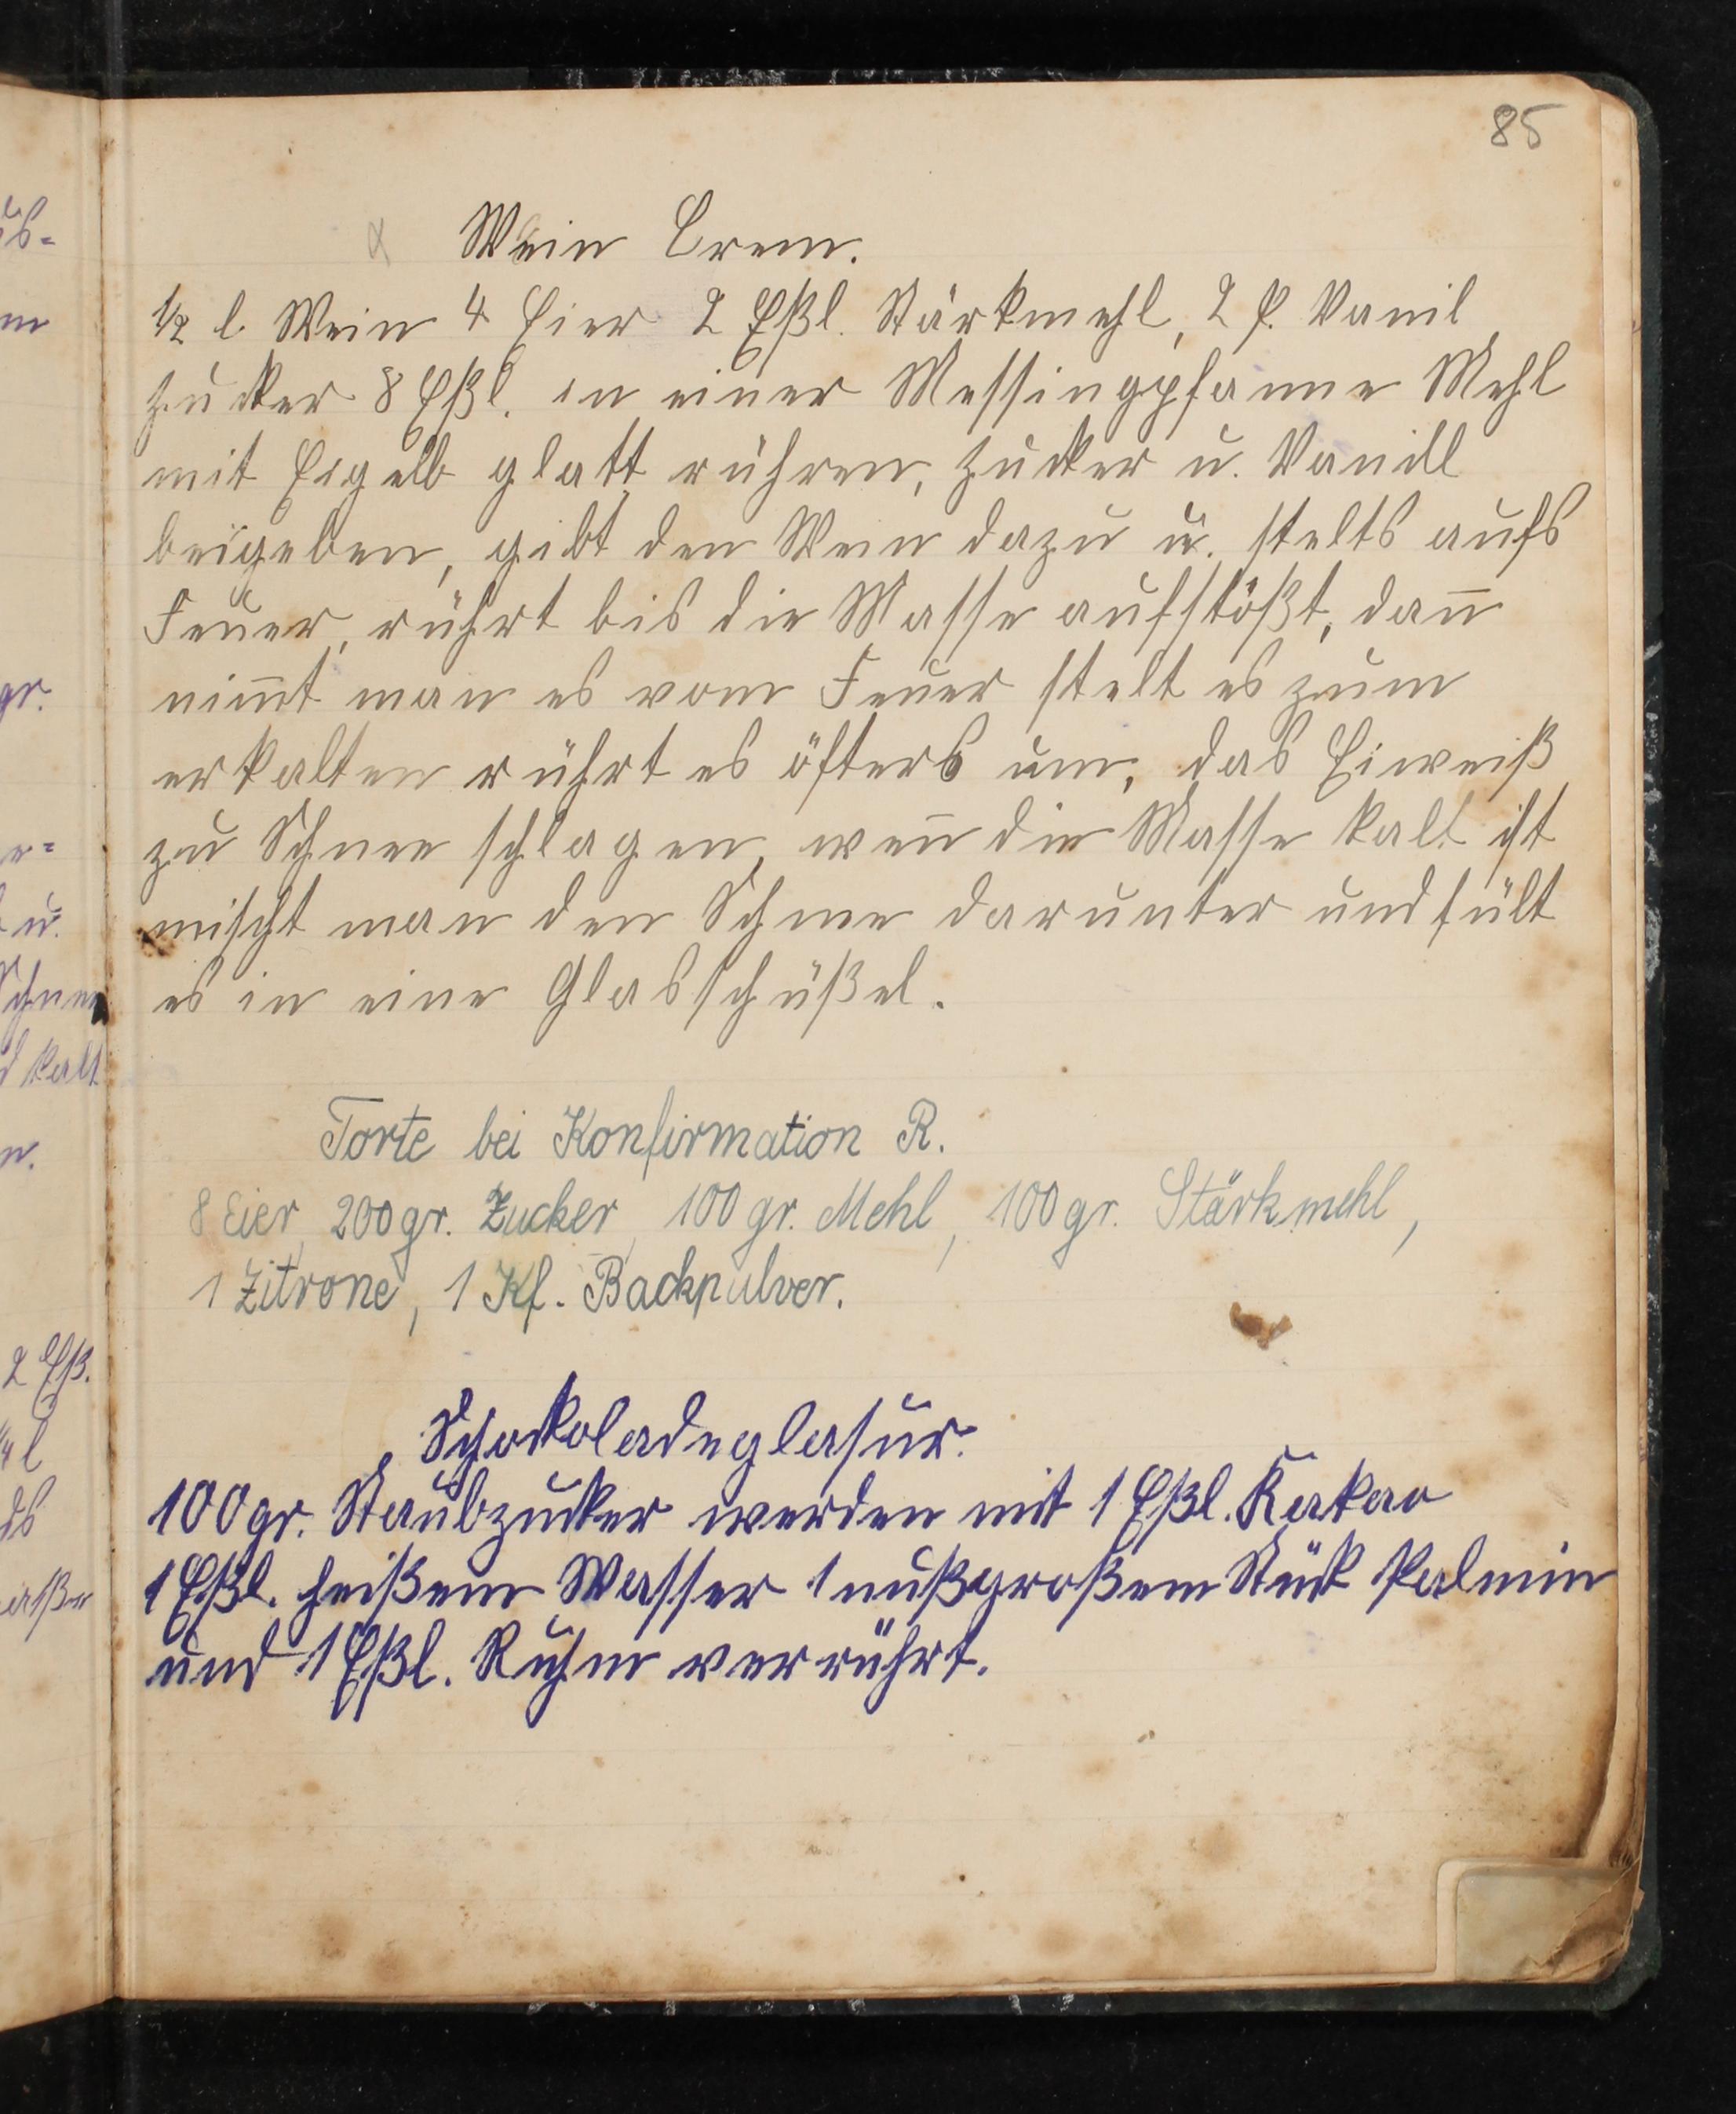 85
Wein Crem.
½ l Wein 4 Eier 2 Eßl. Stärkmehl, 2 P. Vanil
zucker 8 Eßl. in einer Messingpfanne Mehl
mit Eigelb glatt rühren, Zucker u. Vanill
beigeben, gibt den Wein dazu u. stelts aufs
Feuer, rührt bis die Masse aufstößt, dan̄
nim̄t man es vom Feuer stelt es zum
erkalten rührt es öfters um, das Eiweiß
zu Schnee schlagen, wen̄ die Masse kalt ist
mischt man den Schnee darunter und fült
es in eine Glasschüßel.
Torte bei Konfirmation R.
8 Eier, 200 gr. Zucker, 100 gr. Mehl, 100 gr. Stärkmehl,
1 Zitrone, 1 Kf. Backpulver.
Schockoladeglasur.
100 gr. Staubzucker werden mit 1 Eßl. Kakao
1 Eßl. heißem Wasser 1 nußgroßem Stück Palmin
und 1 Eßl. Ruhm verrührt.